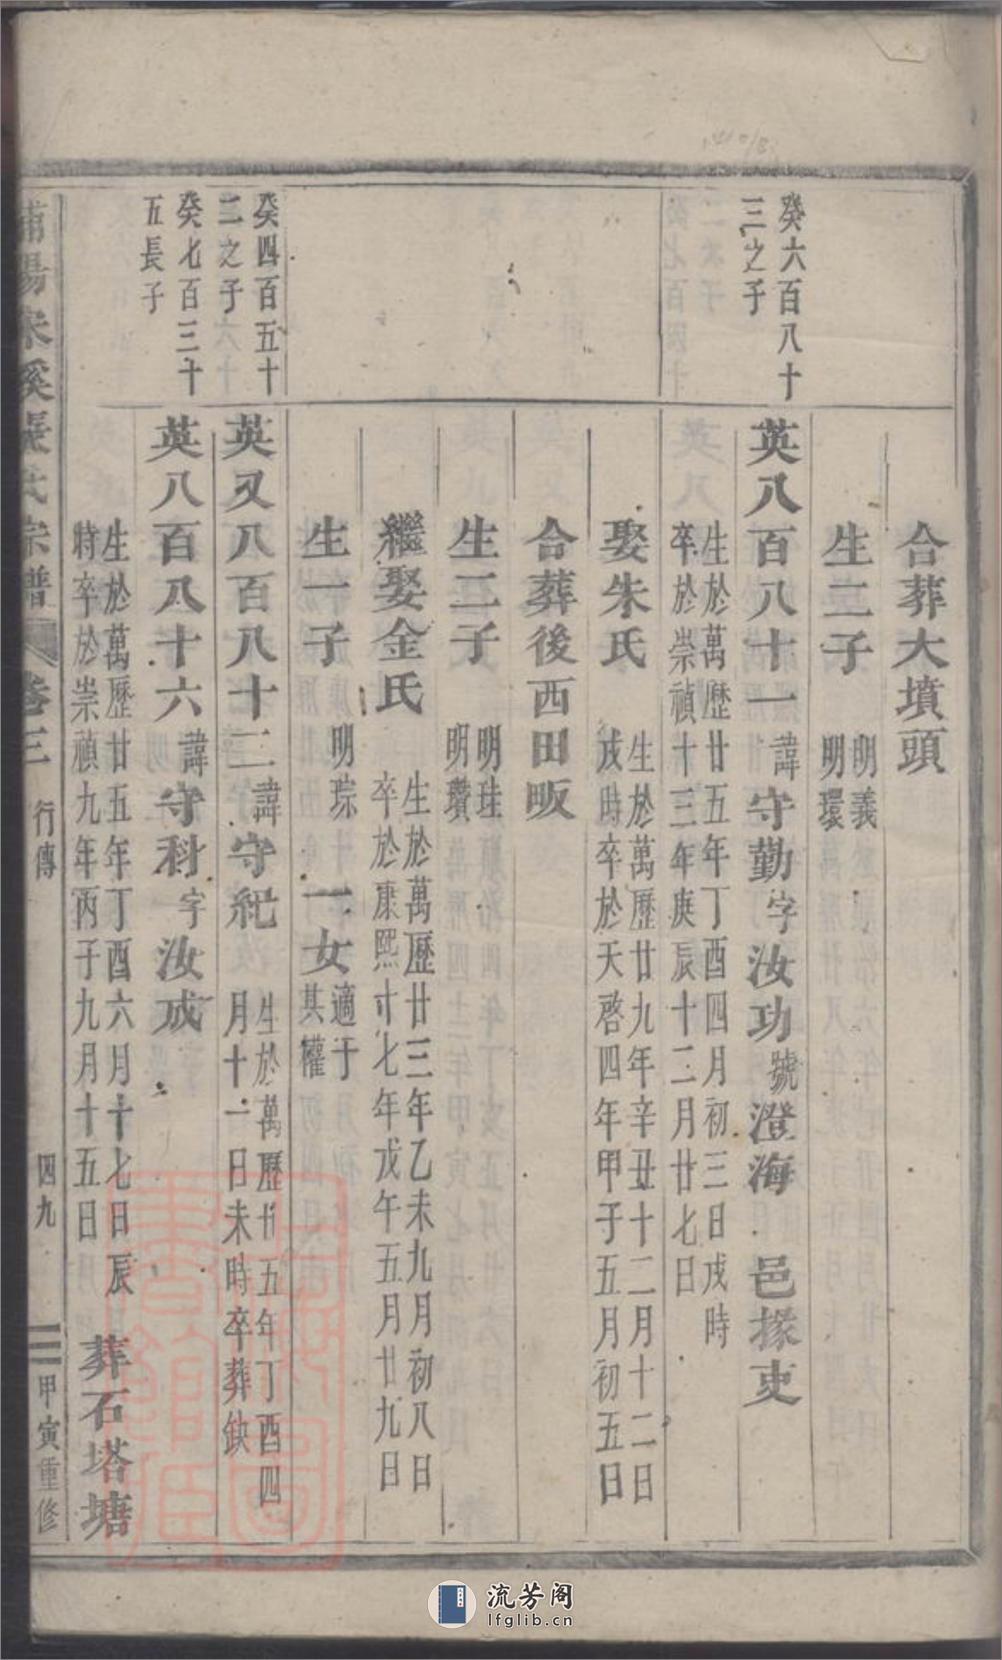 合葬大墳頭
生二子
明義
明環
癸六百八十
三之子
英八百八十一諱守勤字汝功號澄海 邑掾吏
生於萬歷廿五年丁酉四月初三日戌時
卒於崇禎十三年庚辰十二月廿七日
娶朱氏
生於萬歷廿九年辛丑十二月十二日
戌時卒於天啓四年甲子五月初五日
合葬後西田畈
生二子
明珪
明瓚
繼娶金氏
生於萬歷廿三年乙未九月初八日
卒於康熙十七年戊午五月廿九日
生一子 明琮 一女
適于
其權
癸四百五十
二之子
英又八百八十二諱守紀
生於萬歷廿五年丁酉四
月十一日未時卒葬缺
癸七百三十
五長子
英八百八十六諱守科字汝成
生於萬歷廿五年丁酉六月十七日辰
時卒於崇禎九年丙子九月十五日
葬石塔塘
浦陽宋溪張氏宗譜 卷三 行傳 四九 甲寅重修
流芳阁
lfglib.cn